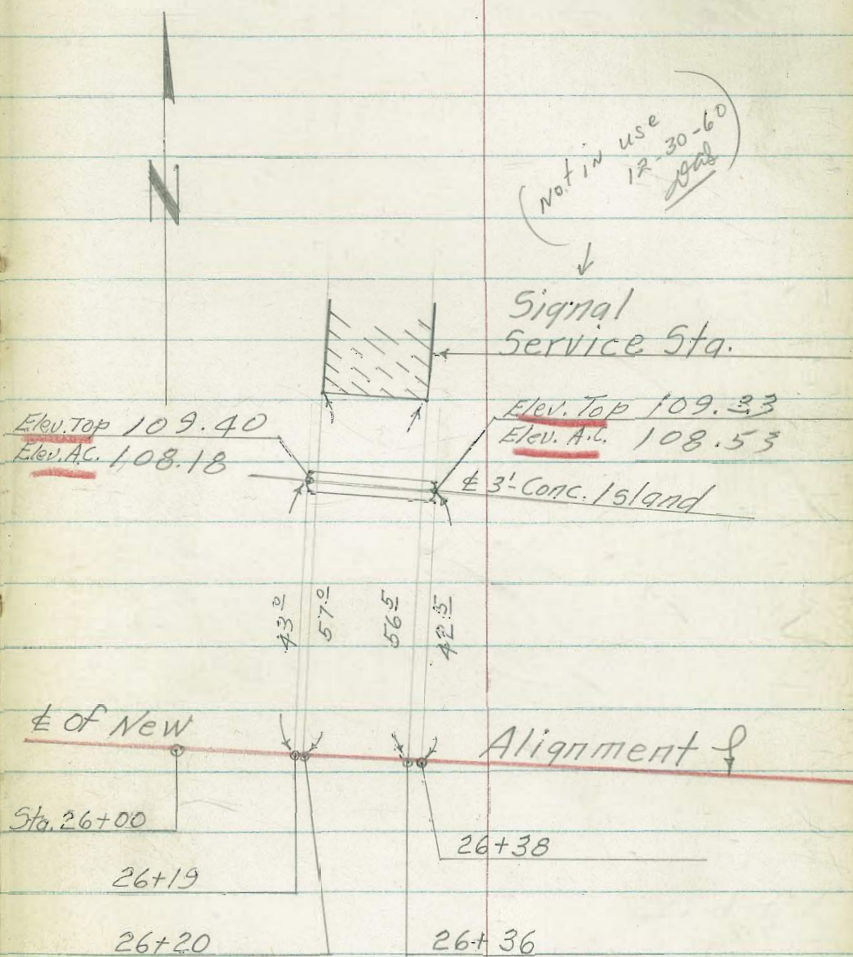 N
(Not in use
12-30-60
Signal
Service Sta.
Elev. Top 109.40
Elev. A.C. 108.18
Elev. Top 109.33
Elev. A.C. 108.53
℄ 3'-Conc. Island
43.0
57.0
56.5
42.5
℄ of New Alignment
Sta. 26+00
26+38
26+19
26+20
26+36